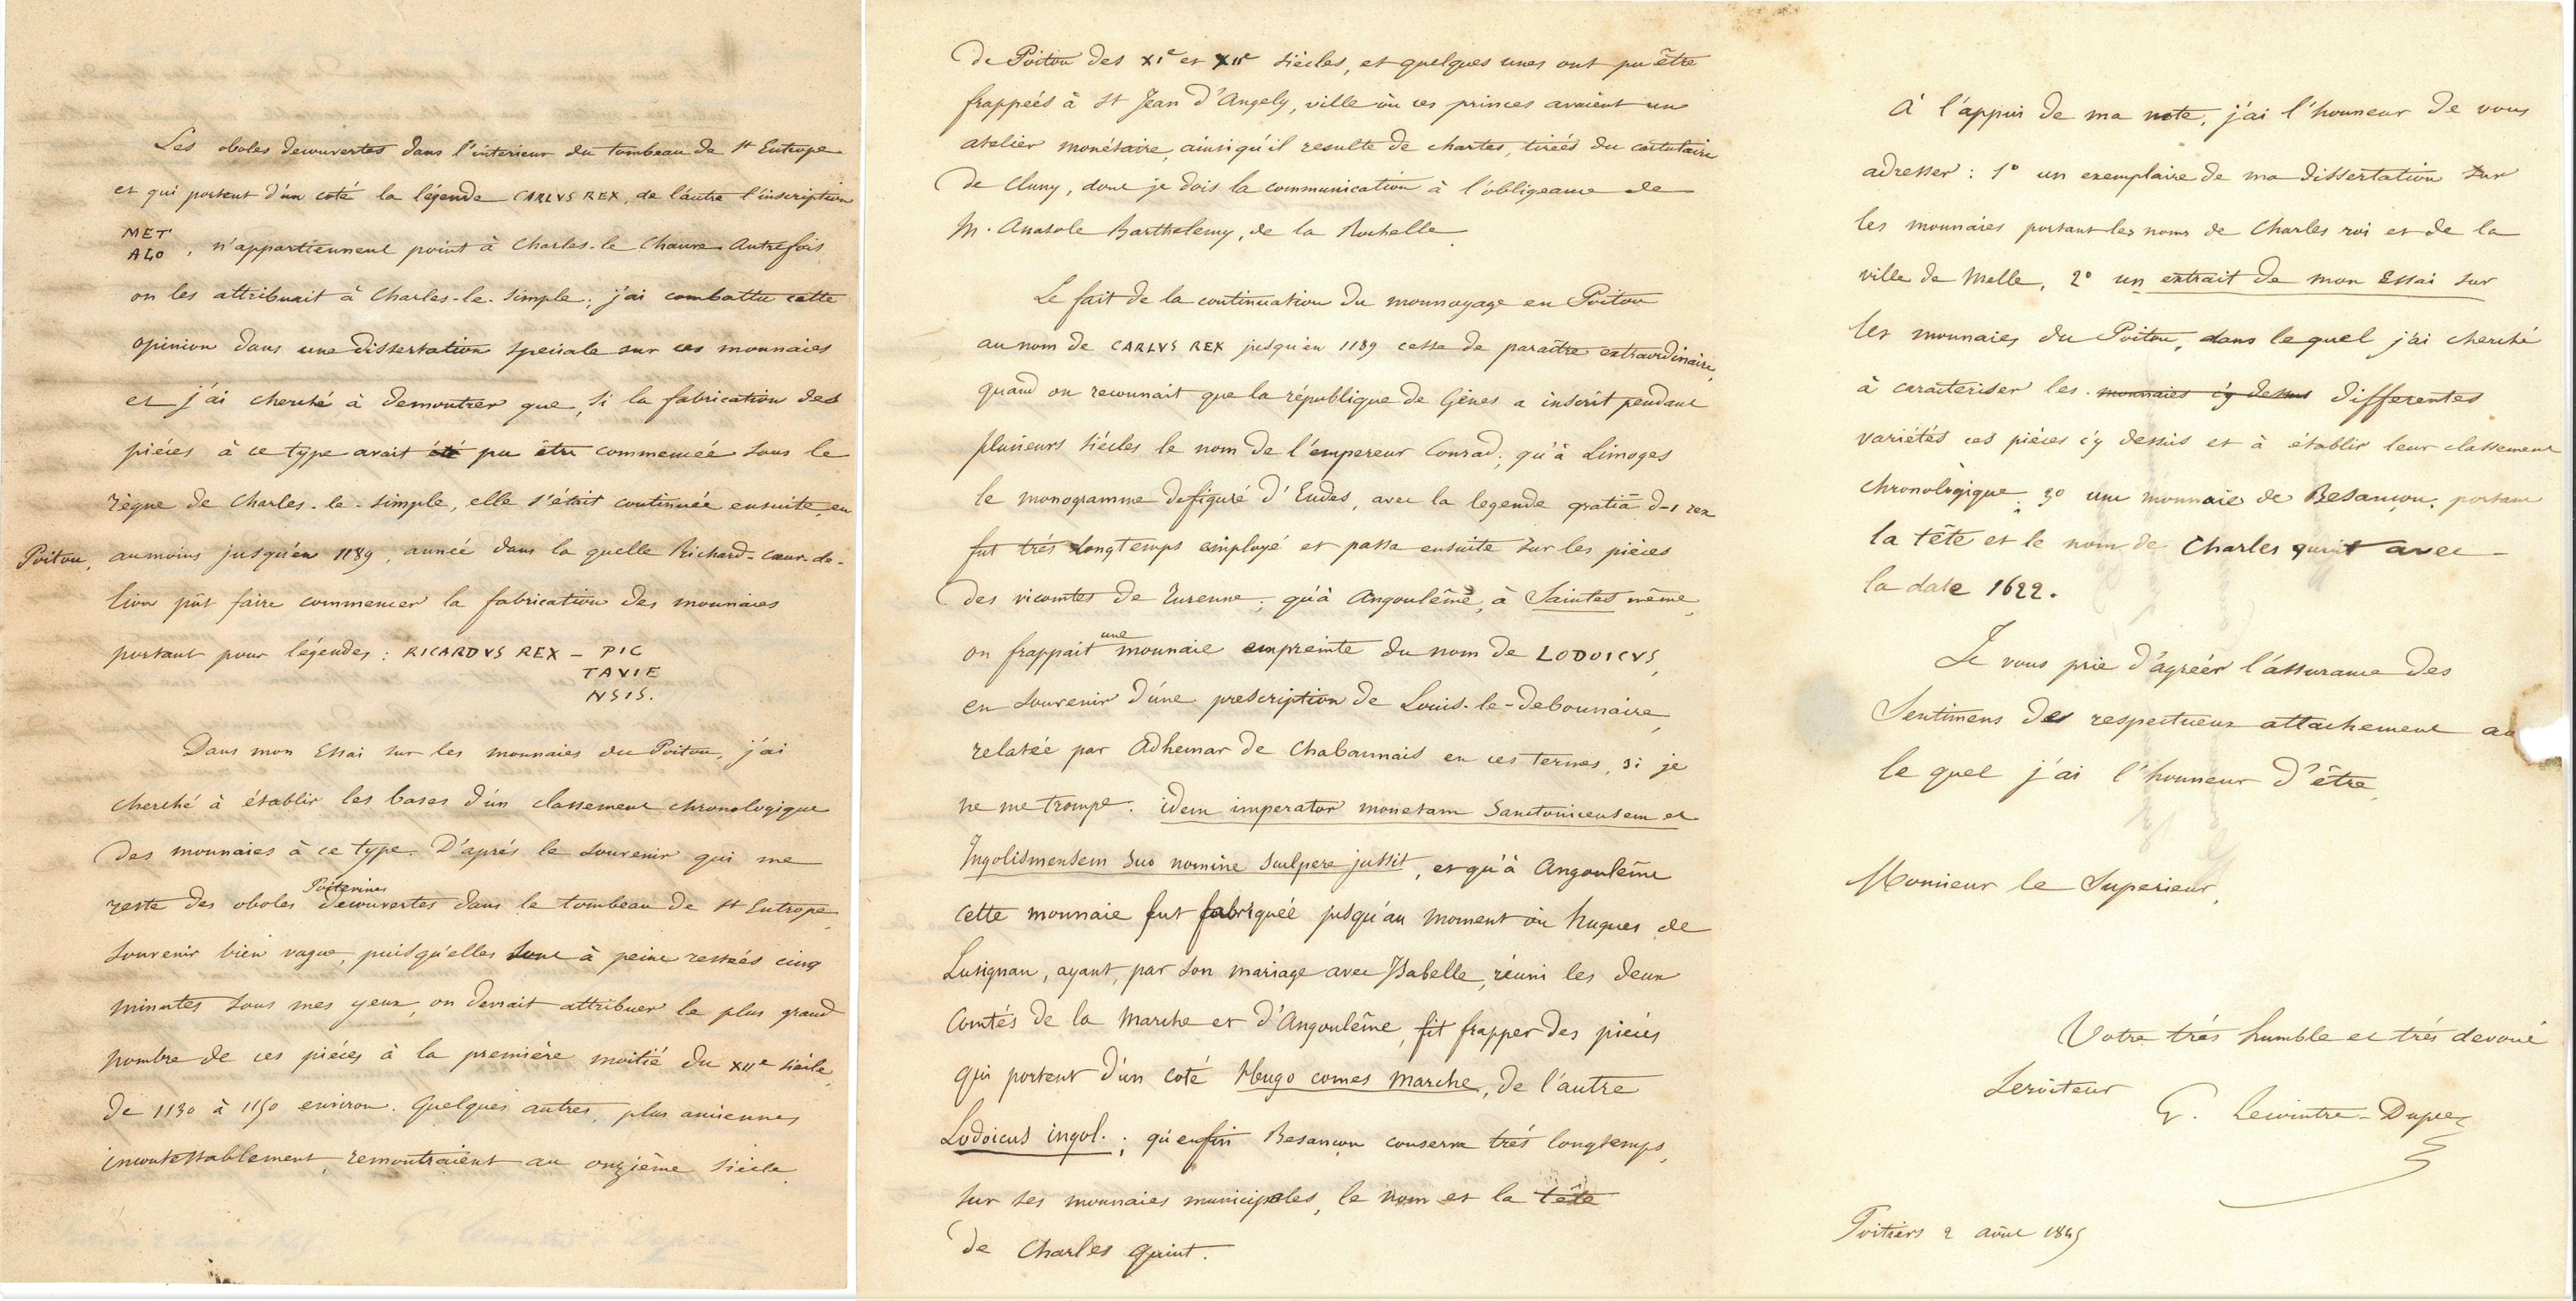 Les oboles decouvertes dans l'interieur du tombeau de St Eutrope
et qui portent d'un coté la légende CARLVS REX, de l'autre l'inscription
MET
ALO, n'appartiennent point à Charles-le-Chauve. Autrefois
on les attribuait à Charles-le-Simple; j'ai combattu cette
opinion dans une dissertation speciale sur ces monnaies
et j'ai cherché à demontrer que, si la fabrication des
piéces à ce type avait été pu être commencée sous le
règne de Charles-le-Simple, elle s'était continuée ensuite, en
Poitou, au moins jusqu'en 1189, année dans la quelle Richard-cœur-de-
lion pût faire commencer la fabrication des monnaies
portant pour légendes: RICARDVS REX — PIC
TAVIE
NSIS.
Dans mon Essai sur les monnaies du Poitou, j'ai
cherché à établir les bases d'un classement chronologique
des monnaies à ce type. D'aprés le souvenir qui me
reste des oboles Poitevines decouvertes dans le tombeau de St Eutrope,
souvenir bien vague, puisqu'elles sont à peine restées cinq
minutes sous mes yeux, on devrait attribuer le plus grand
nombre de ces piéces à la première moitié du XIIe siécle,
de 1130 à 1150 environ. Quelques autres, plus anciennes
incontestablement, remontraient au onzième siécle.
de Poitou des XIe et XIIe siécles, et quelques unes ont pu être
frappées à St Jean d'Angely, ville où ces princes avaient un
atelier monétaire, ainsi qu'il resulte de chartes, tirées du cartulaire
de Cluny, dont je dois la communication à l'obligeance de
M. Anatole Barthelemy, de la Rochelle.
Le fait de la continuation du monnoyage en Poitou
au nom de CARLVS REX jusqu'en 1189 cesse de paraître extraordinaire,
quand on reconnait que la république de Gènes a inscrit pendant
plusieurs siécles le nom de l'empereur Conrad; qu'à Limoges
le monogramme defiguré d'Eudes, avec la legende gratiā d-i rex
fut trés longtemps employé et passa ensuite sur les piéces
des vicomtes de Turenne; qu'à Angoulême, à Saintes même,
on frappait une monnaie empreinte du nom de LODOICVS,
en souvenir d'une prescription de Louis-le-debonnaire,
relatée par Adhemar de Chabannais en ces termes, si je
ne me trompe: idem imperator monetam Sanctonicensem et
Ingolismensem suo nomine sculpere jussit, et qu'à Angoulême
cette monnaie fut fabriquée jusqu'au moment où hugues de
Lusignan, ayant, par son mariage avec Isabelle, réuni les deux
Comtés de la Marche et d'Angoulême, fit frapper des piéces
qui portent d'un coté Hugo comes Marche, de l'autre
Lodoicus ingol.; qu'enfin Besançon conserva trés longtemps,
sur ses monnaies municipales, le nom et la tête
de Charles quint.
À l'appui de ma note, j'ai l'honneur de vous
adresser: 1º un exemplaire de ma dissertation sur
les monnaies portant les noms de Charles roi et de la
ville de Melle, 2º un extrait de mon Essai sur
les monnaies du Poitou, dans lequel j'ai cherché
à caracteriser les monnaies cy dessus differentes
variétés ces piéces cy dessus et à établir leur classement
chronologique; 3º une monnaie de Besançon, portant
la tête et le nom de Charles quint avec
la date 1622.
Je vous prie d'agréer l'assurance des
sentimens des respectueux attachement au
le quel j'ai l'honneur d'être,
Monsieur le Superieur,
Votre trés humble et trés devoué
Serviteur
G. Lecointre-Dupont
Poitiers 2 août 1845